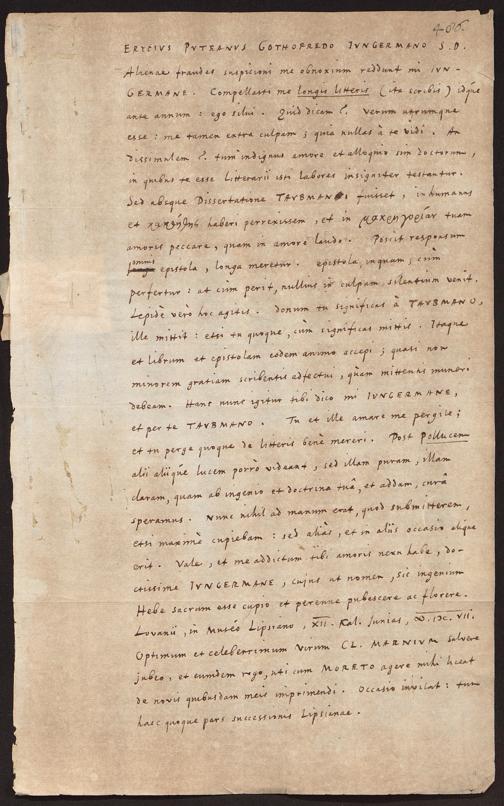 406.
ERYCIUS PUTEANUS GOTHOFREDO IUNGERMANO S.D.
Alienae fraudes suspicioni me obnoxium reddunt mi IUN-
GERMANE. Compellasti me longis litteris (ita scribis) idque
ante annum: ego silui. Quid dicam? Verum utrumque
esse: me tamen extra culpam; quia nullas à te vidi. An
dissimulem? tum indignus amore et alloquio sim doctorum,
in quibus te esse litterarii isti labores insigniter testantur.
Sed absque Dissertatione TAUBMANI fuisset, inhumanus
et haberi perrexissem, et in tuam
amoris peccare, quam in amore laudo. Poscit responsum
omnis epistola, longa meretur. epistola, inquam, cum
perfertur: at cùm perit, nullius in culpam, silentium venit.
Lepidè verò hoc agitis. Donum tu significas à TAUBMANO,
ille mittit: etsi tu quoque, cùm significas mittis. Itaque
et librum et epistolam eodem animo accepi; quasi non
minorem gratiam scribentis adfectui, quàm mittentis muneri
debeam. Hanc nunc igitur tibi dico mi IUNGERMANE,
et per te TAUBMANO. Tu et ille amare me pergite;
et tu perge quoque de litteris benè mereri. Post Pollucem
alii aliique lucem porrò videant, sed illam puram, illam
claram, quam ab ingenio et doctrina tuâ, et addam, curâ
speramus. Nunc nihil ad manum erat, quod submitterem,
etsi maximè cupiebam: sed aliàs, et in aliis occasio aliqua
erit. Vale, et me addictum tibi amoris nexu habe, do-
ctissime IUNGERMANE, cujus ut nomen, sic ingenium
Hebe sacrum esse cupio et perenne pubescere ac florere.
Lovanii, in Museo Lipsiano, XII. Kal. Junias, VII.
Optimum et celeberrimum virum CL. MARNIUM salvere
jubeo, et eumdem rogo, uti cum MORETO agere mihi liceat
de novis quibusdam meis imprimendi. Occasio invitat: tum
haec quoque pars successionis Lipsianae.